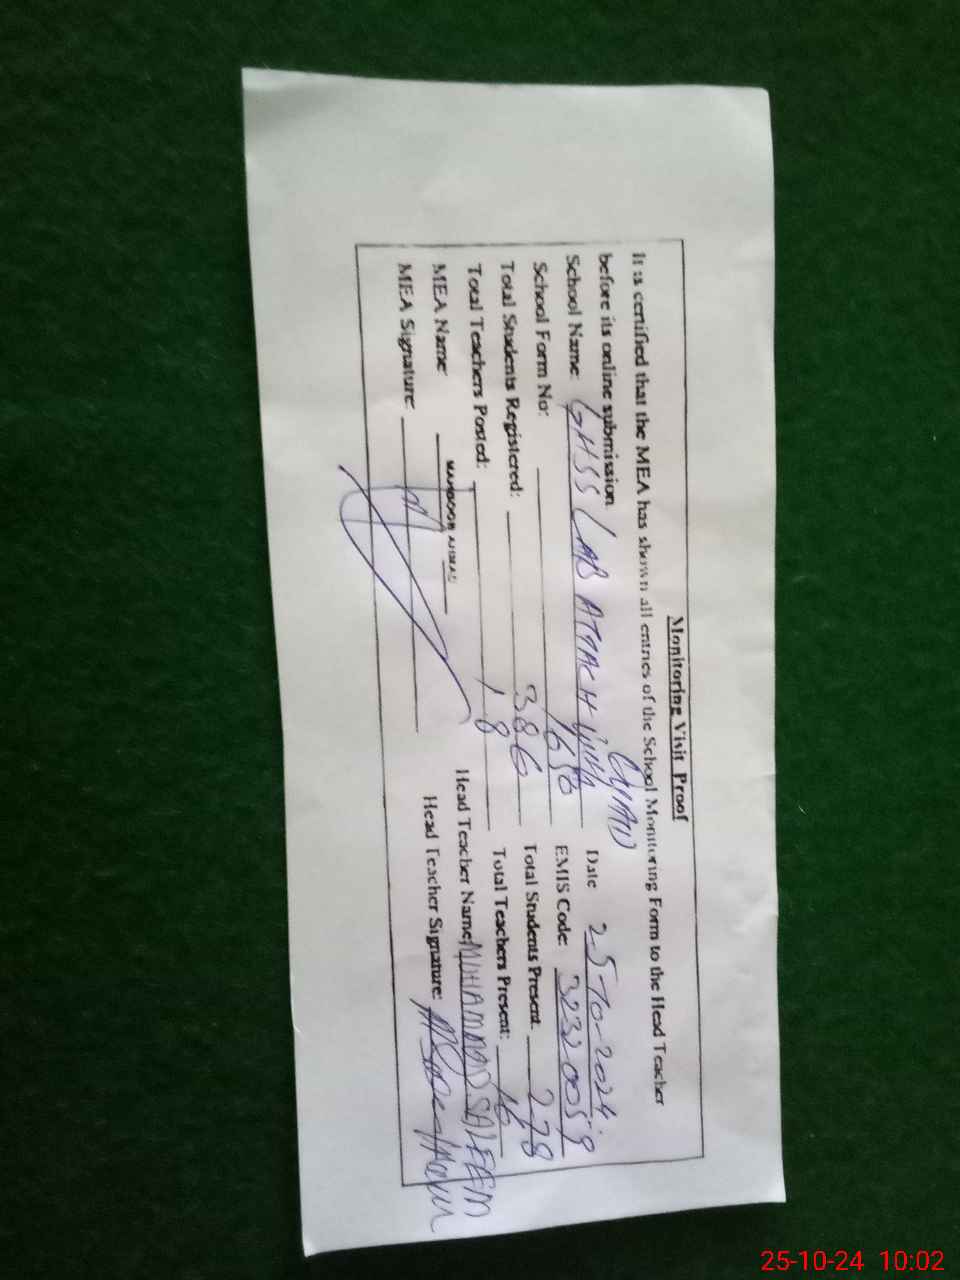 Monitoring Visit Proof
It is certified that the MEA has shown all entries of the School Monitoring Form to the Head Teacher
before its online submission
School Name: GHSS LAB ATTACH Date 25-10-2024
School Form No: 1658 EMIS Code: 32320059
Total Students Registered: 386 Total Students Present. 278
Total Teachers Posted: 18 Total Teachers Present: 16
MEA Name AHMAD Head Teacher Name MUHAMMAD SALEEM
MEA Signature: Head Teacher Signature:
25-10-24 10:02